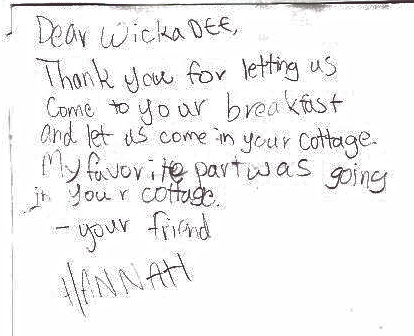 Dear WickaDEE,
Thank you for letting us
Come to your breakfast
and let us come in your cottage.
My favorite part was going
in your cottage.
- your friend
HANNAH